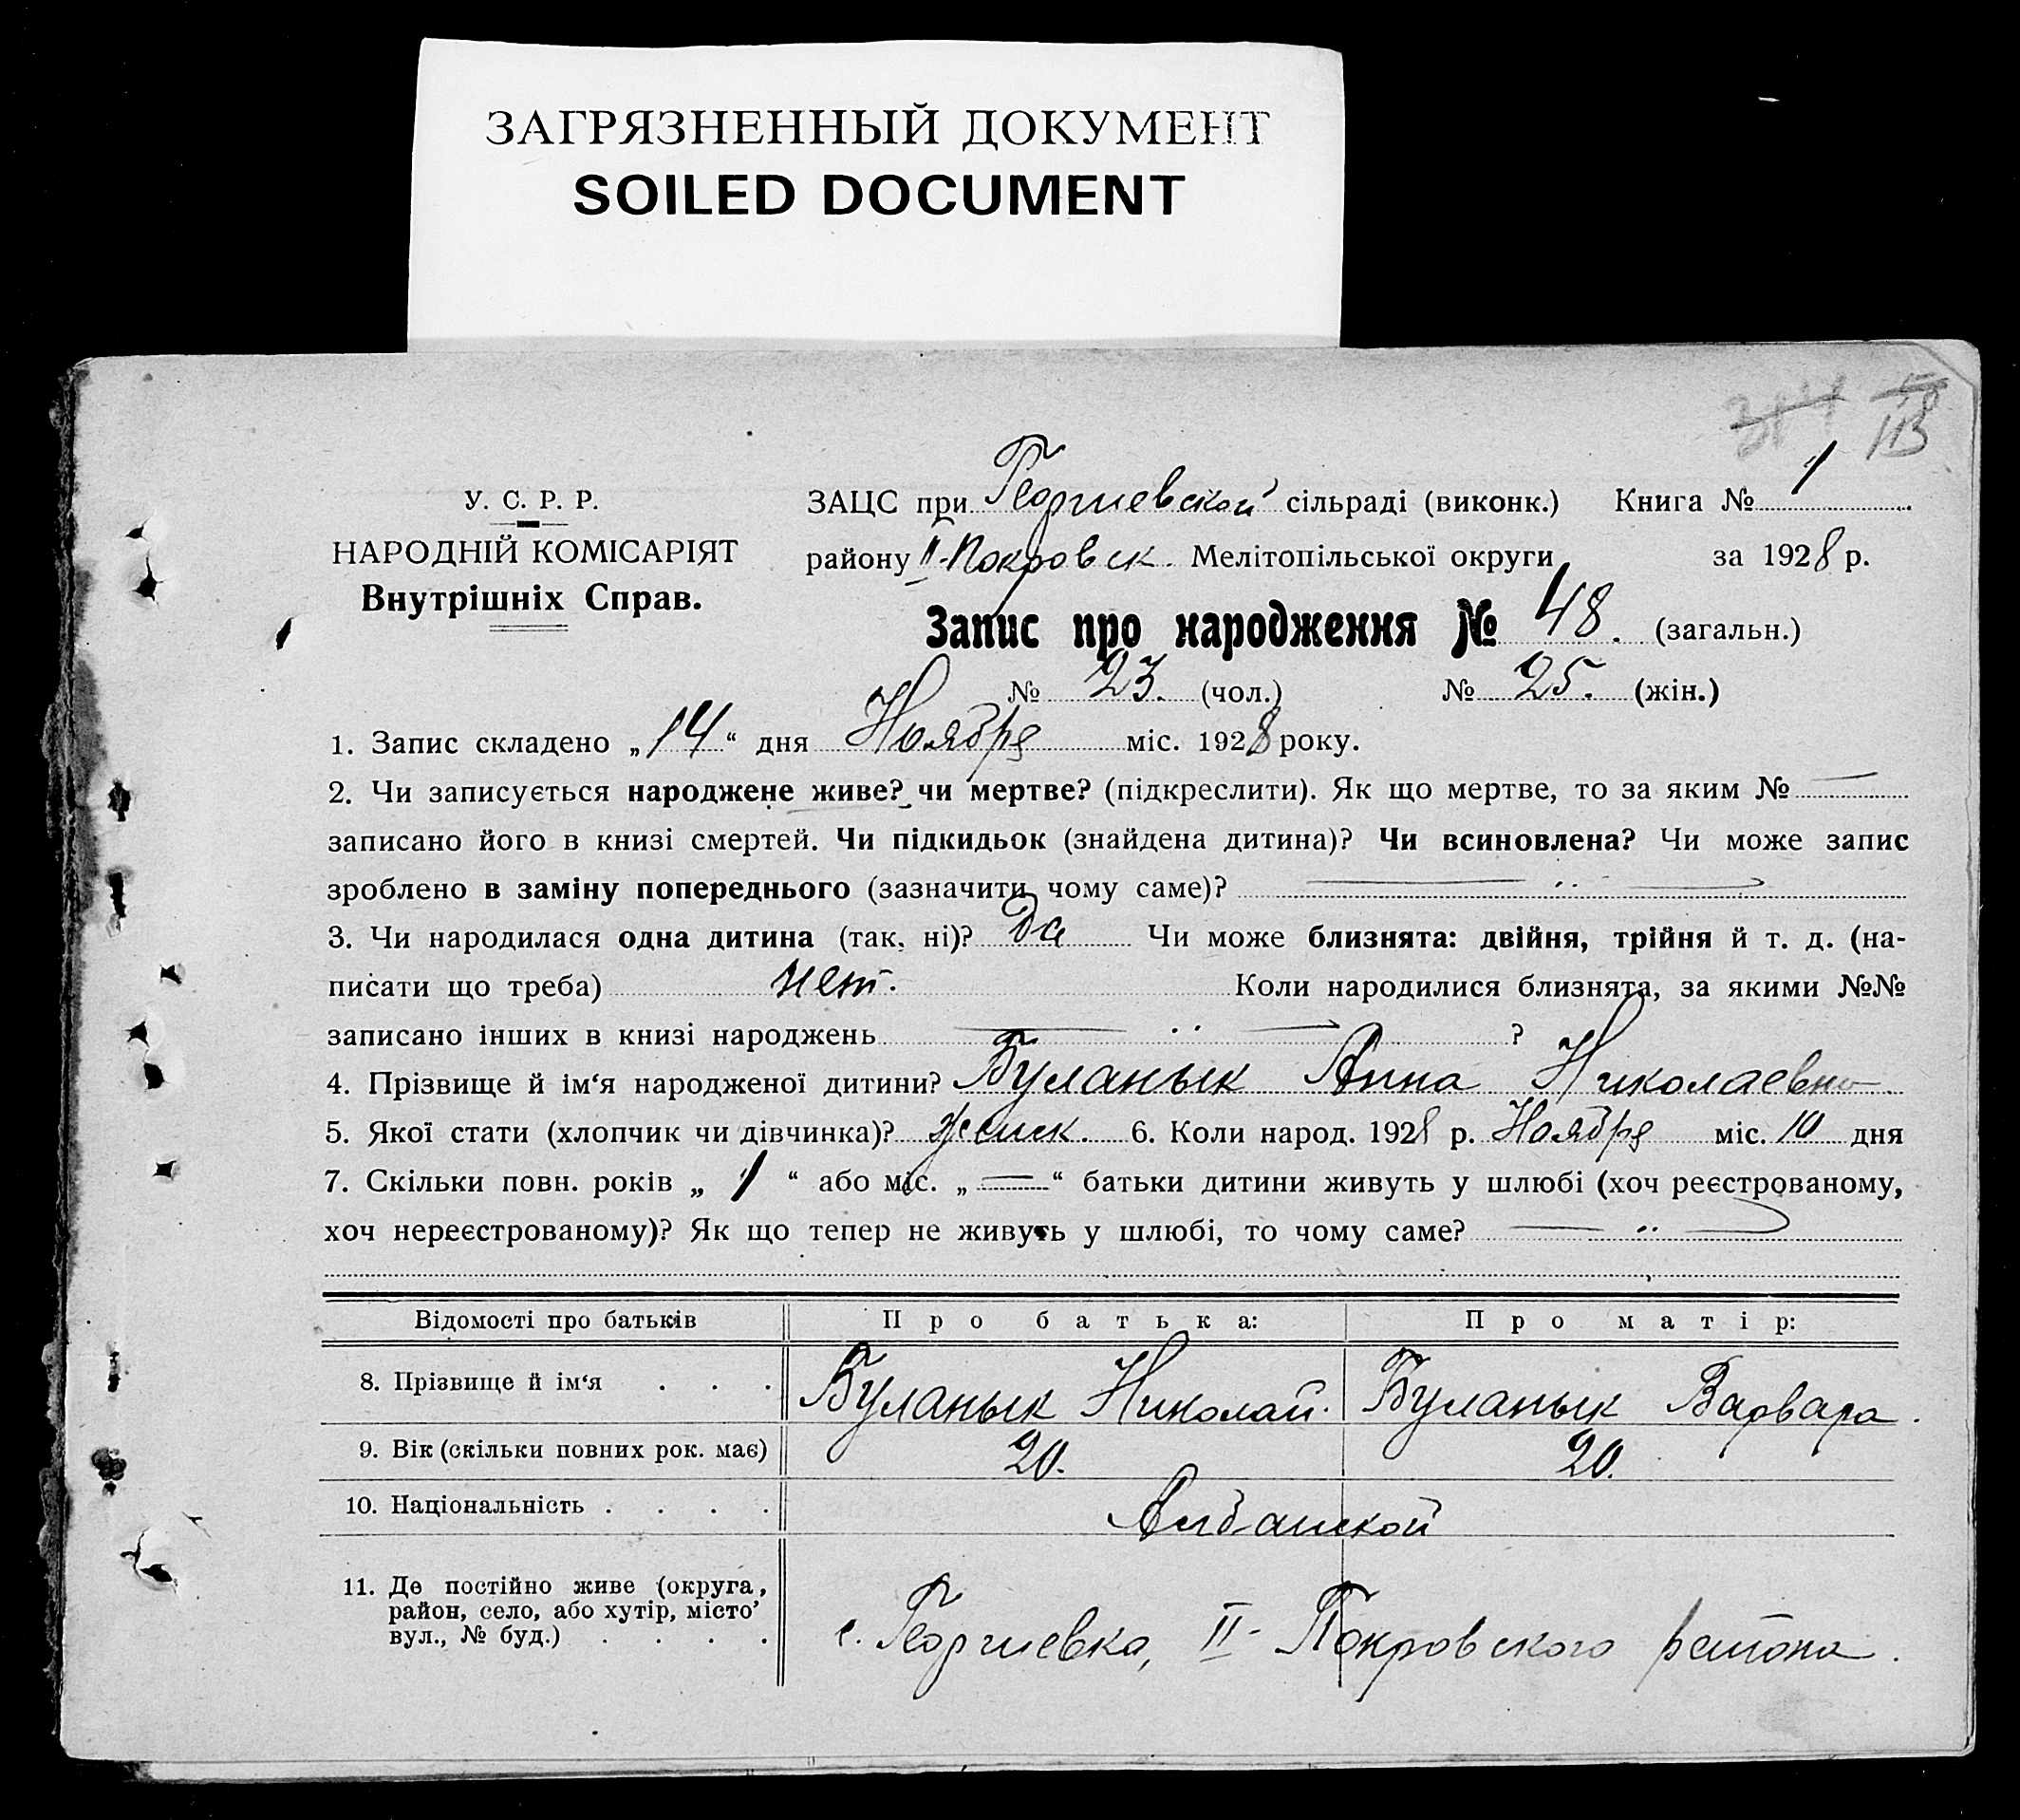 ЗАГРЯЗНЕННЫЙ ДОКУМЕНТ
SOILED DOCUMENT
У. С. Р. Р.
НАРОДНІЙ КОМІСАРІЯТ
Внутрішніх Справ.
ЗАЦС при Георгиевской сільраді (виконк.) Книга № 1
району II-Покровск. Мелітопільської округи за 1928 р.
Запис про народження № 48. (загальн.)
№ 23. (чол.) № 25. (жін.)
1. Запис складено „14“ дня Ноября міс. 1928 року.
2. Чи записується народжене живе? чи мертве? (підкреслити). Як що мертве, то за яким № —
записано його в книзі смертей. Чи підкидьок (знайдена дитина)? Чи всиновлена? Чи може запис
зроблено в заміну попереднього (зазначити чому саме)?
3. Чи народилася одна дитина (так, ні)? Да Чи може близнята: двійня, трійня й т. д. (на-
писати що треба) нет. Коли народилися близнята, за якими №№
записано інших в книзі народжень ?
4. Прізвище й ім‘я народженої дитини? Буланык Анна Николаевна
5. Якої стати (хлопчик чи дівчинка)? женск. 6. Коли народ. 1928 р. Ноября міс. 10 дня
7. Скільки повн. років „ 1 “ або міс. „ — “ батьки дитини живуть у шлюбі (хоч реєстрованому,
хоч нереєстрованому)? Як що тепер не живуть у шлюбі, то чому саме?
Відомості про батьків Про батька: Про матір:
8. Прізвище й ім‘я . . . Буланык Николай. Буланык Варвара.
9. Вік (скільки повних рок. має) 20. 20.
10. Національність . . . . Албанской
11. Де постійно живе (округа,
район, село, або хутір, місто’
вул., № буд.) . . . . с. Георгиевка, II-Покровского района.